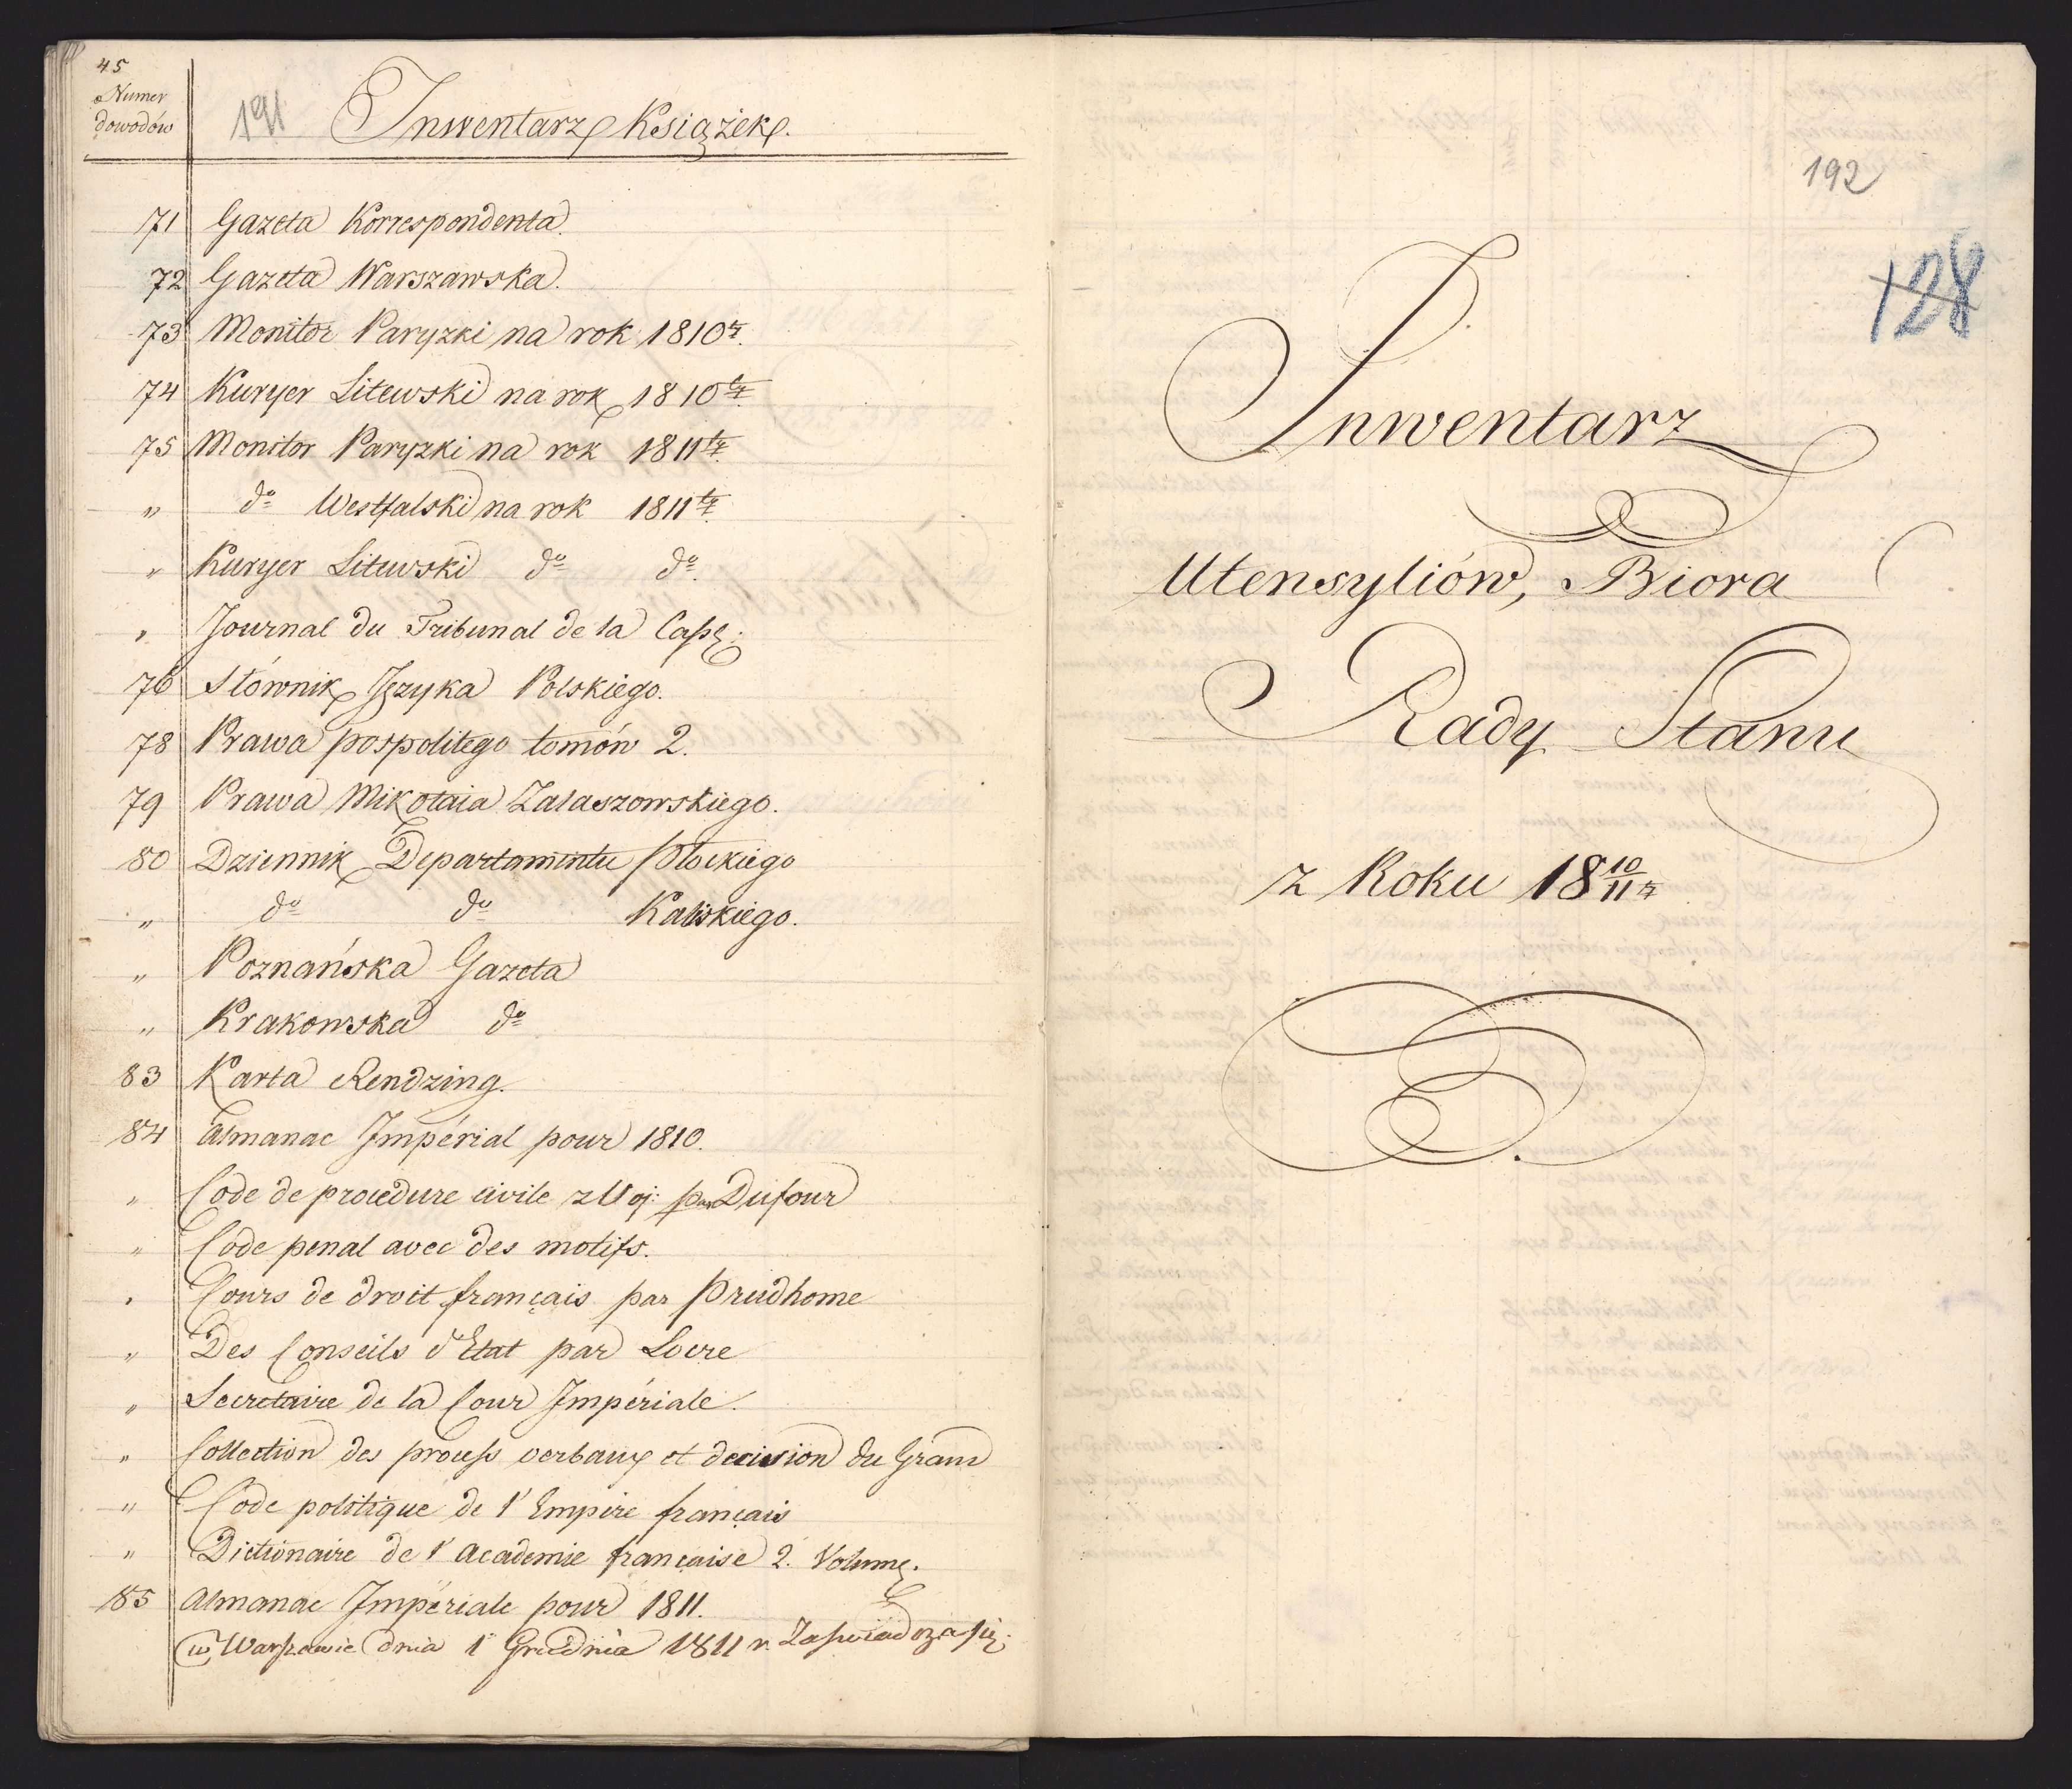 45
Numer
dowodów
191 Inwentarz Książek.
71 Gazeta Korrespondenta.
72 Gazeta Warszawska.
73 Monitor Paryzki na rok 1810 r.
74 Kuryer Litewski na rok 1810 tr.
75 Monitor Paryzki na rok 1811 tr.
" do Westfalski na rok 1811 tr.
" Kuryer Litewski do do.
" Journal du Tribunal de la Cass:
76 Słównik Języka Polskiego.
78 Prawa pospolitego tomów 2.
79 Prawa Mikołaia Zalaszowskiego.
80 Dziennik Departamentu Płockiego
" do do Kaliskiego.
" Poznańska Gazeta
" Krakowska do
83 Karta Rendzing.
84 Almanac Impérial pour 1810.
" Code de procedure civile par Dufour
" Code penal avec des motifs.
" Cours de droit français par Prudhome
" Des Conseils d'Etat par Locre
" Secretaire de la Cour Impériale.
" Collection des process verbaux et decision du Grand
" Code politique de l'Empire français
" Dictionaire de l'Academie française 2. Volume.
85 Almanac Impériale pour 1811.
w Warszawie dnia 1 Grudnia 1811 r. Zaświadcza się:
192
128
Inwentarz
Utensyliów, Biora
Rady Stanu
z Roku 18 10/11 r